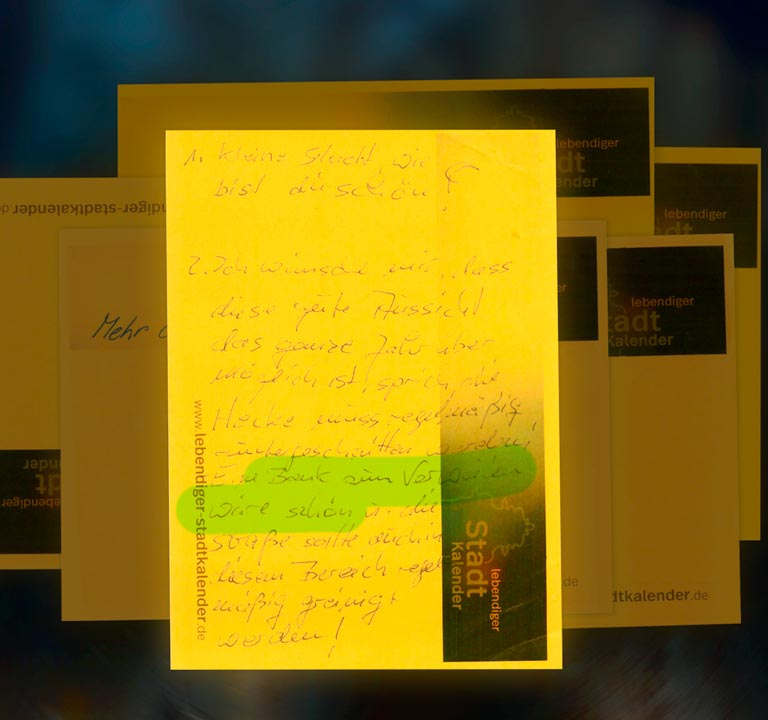 1. Kleine Stadt, wie
bist du schön!
2. Ich wünsche mir, dass
diese gute Aussicht
das ganze Jahr über
möglich ist, sprich die
Hecke muss regelmäßig
runtergeschnitten werden!
Eine Bank zum Verweilen
wäre schön u. die
Straße sollte auch in
diesem Bereich regel
mäßig gereinigt
werden!
www.lebendiger-stadtkalender.de
lebendiger
Stadt
Kalender
lebendiger
dt
ender
lebendiger
dt
lebendiger
tadt
Kalender
Mehr
diger-stadtkalender.de
lebendiger
dt
der
de
dtkalender.de